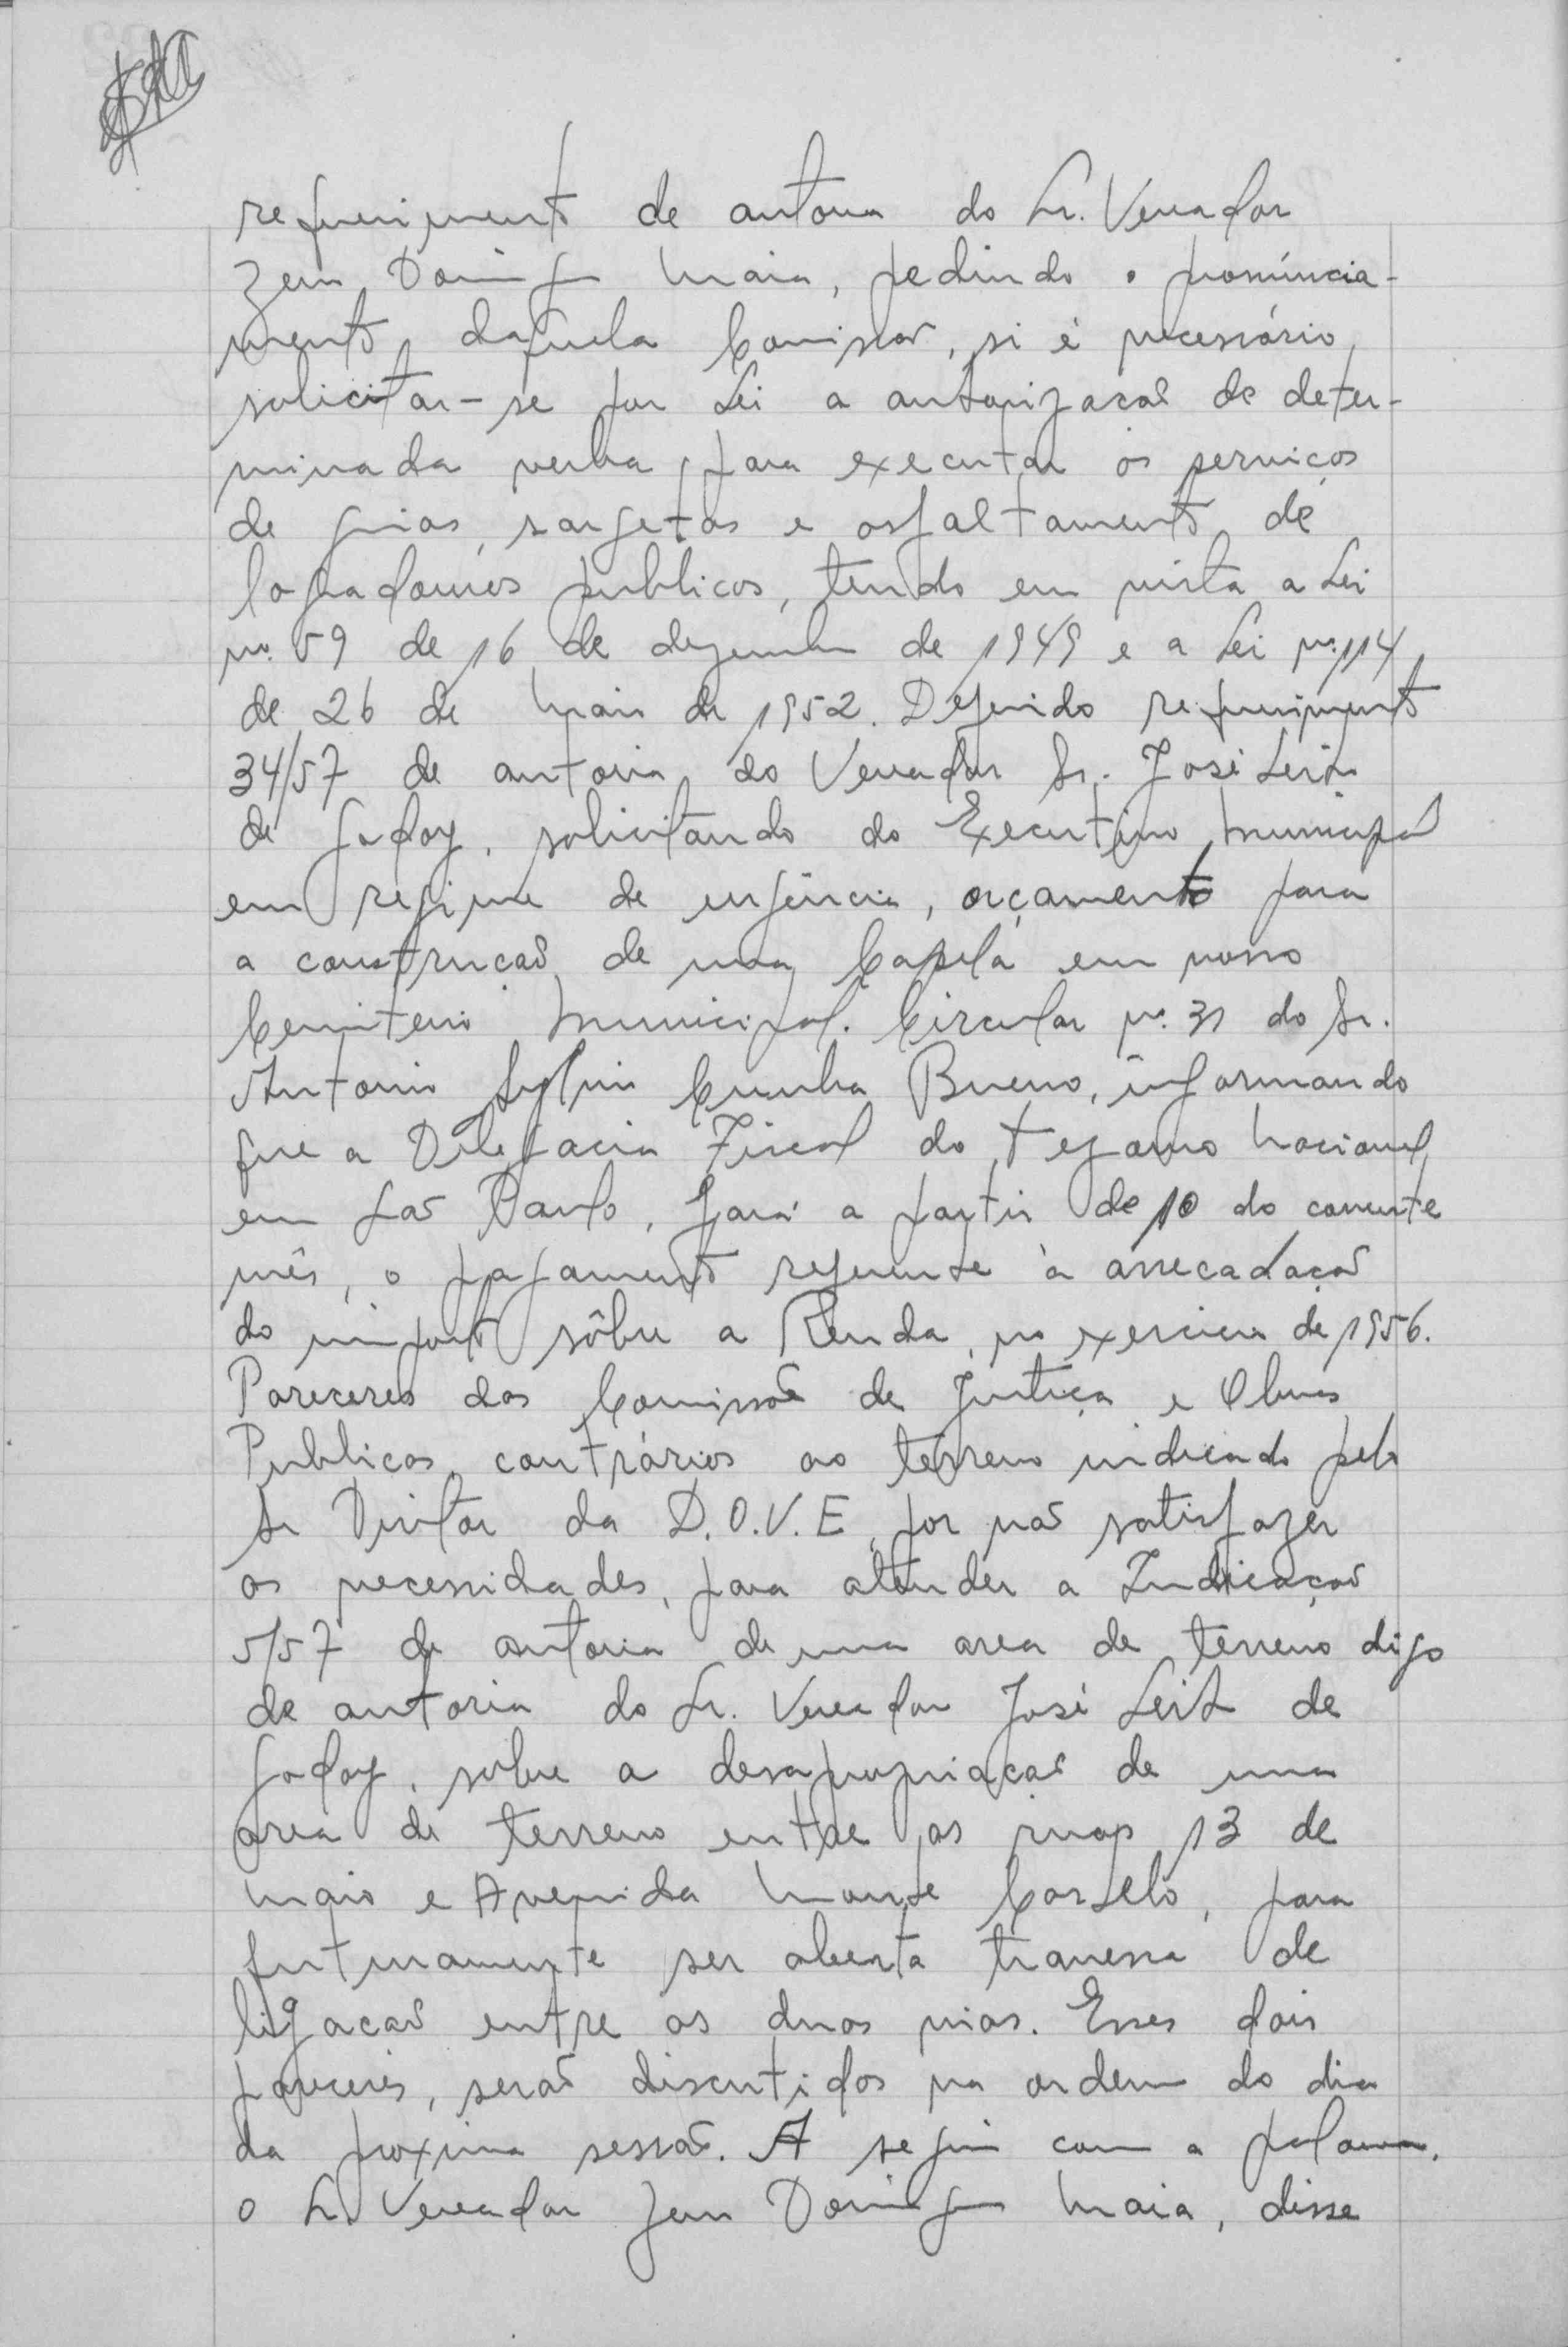 requerimento de autoria do Sr. Vereador
Zeno Domingues Maia, pedindo o pronúncia-
mento daquela Comissão, si é necessário,
solicitar-se por Lei a autorização de deter-
minada verba, para executar os serviços
de guias, sargetas e asfaltamento de
logradouros publicos, tendo em vista a Lei
nº. 59 de 16 de dezembro de 1949 e a Lei nº. 114
de 26 de Maio de 1952. Deferido requerimento
34/57 de autoria do Vereador Sr. José Leite
de Godoy, solicitando do Executivo Municipal
em regime de urgência, orçamento para
a construcão de uma Capela em nosso
Cemiterio Municipal. Circular nº. 31 do Sr.
Antonio Sylvio Cunha Bueno, informando
que a Delegacia Fiscal do Tezouro Nacional
em São Paulo, fará a partir de 10 do corrente
mês, o pagamento referente à arrecadação
do imposto sôbre a Renda, no exercicio de 1956.
Pareceres das Comissões de Justiça e Obras
Publicas contrários ao terreno indicado pelo
Sr Diretor da D.O.V.E, por não satisfazer
as necessidades, para atender a Indicação
5/57 de autoria de uma area de terreno digo
de autoria do Sr. Vereador José Leite de
Godoy, sobre a desapropriacão de uma
area de terreno entre as ruas 13 de
Maio e Avenida Monte Castelo, para
futuramente ser aberta travessa de
ligacão entre as duas vias. Esses dois
pareceres, serão discutidos na ordem do dia
da proxima sessão. A seguir com a palavra,
o Sr. Vereador Zeno Domingues Maia, disse